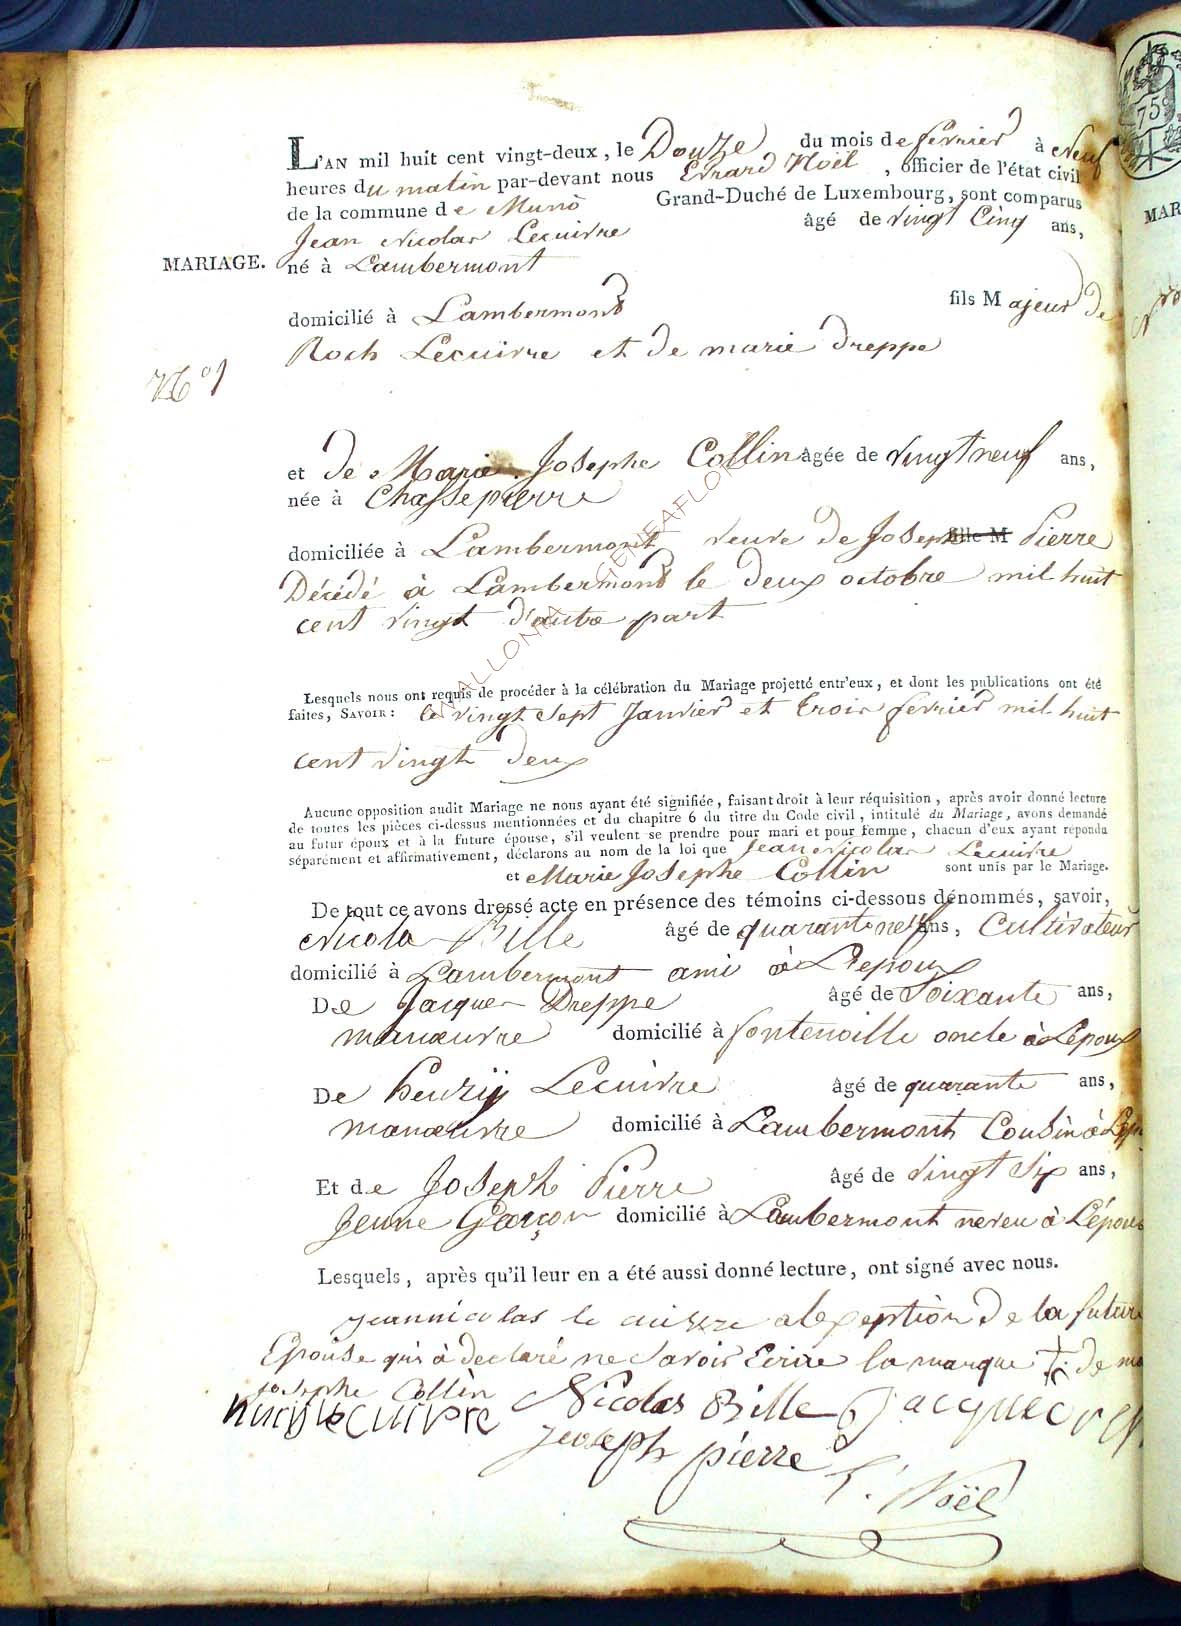 L'AN mil huit cent vingt-deux, le Douze du mois de fevrier à Neuf
heures du matin par-devant nous Erard Noël, officier de l'état civil
de la commune de Muno Grand-Duché de Luxembourg, sont comparus
Jean Nicolas Lecuivre âgé de vingt Cinq ans,
MARIAGE. né à Lambermont
domicilié à Lambermont fils Majeur de
Roch Lecuivre et de marie Dreppe
N.o 1
et de Marie Josephe Collin âgée de vingt neuf ans,
née à Chassepierre
domiciliée à Lambermont veuve de Joseph fille M Pierre
Décédé à Lambermont le deux octobre mil huit
cent vingt d'autre part
Lesquels nous ont requis de procéder à la célébration du Mariage projetté entr'eux, et dont les publications ont été
faites, SAVOIR: le vingt Sept Janvier et trois fevrier mil huit
cent vingt deux
Aucune opposition audit Mariage ne nous ayant été signifiée, faisant droit à leur réquisition, après avoir donné lecture
de toutes les pièces ci-dessus mentionnées et du chapitre 6 du titre du Code civil, intitulé du Mariage, avons demandé
au futur époux et à la future épouse, s'il veulent se prendre pour mari et pour femme, chacun d'eux ayant répondu
séparément et affirmativement, déclarons au nom de la loi que Jean Nicolas Lecuivre
et Marie Josephe Collin sont unis par le Mariage.
De tout ce avons dressé acte en présence des témoins ci-dessous dénommés, savoir,
Nicola Bille âgé de quarante neuf ans, Cultivateur
domicilié à Lambermont ami à Lepoux
De Jacque Dreppe âgé de Soixante ans,
manœuvre domicilié à fontenoille oncle à Lepoux
De henrÿ Lecuivre âgé de quarante ans,
manœuvre domicilié à Lambermont Cousin à Lep
Et de Joseph Pierre âgé de vingt Six ans,
Jeune Garçon domicilié à Lambermont neveu à L'épous
Lesquels, après qu'il leur en a été aussi donné lecture, ont signé avec nous.
jeannicolas le cuivre alexeption de la future
Epouse qui à declaré ne Savoir Ecrire la marque de ma
josephe Collin
Nicolas Bille jacque
joseph pierre
Noël
WALLONIA GENEAFLORE
75c
MAR